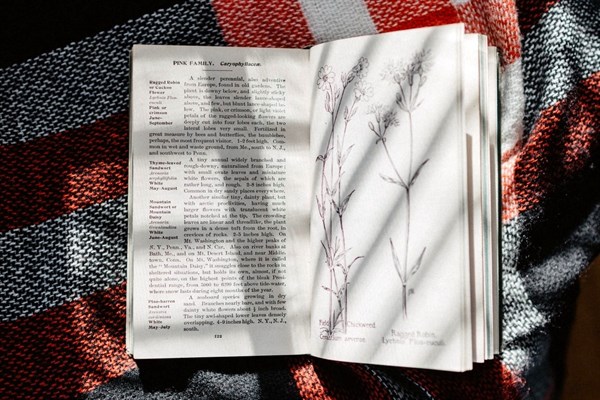 PINK FAMILY. Caryophyllaceæ.
Ragged Robin
or Cuckoo
Flower
Lychnis Flos-
cuculi
Pink or
crimson
June-
September
A slender perennial, also adventive
from Europe, found in old gardens. The
plant is downy below, and slightly sticky
above, the leaves slender lance-shaped
above, and few, but blunt lance-shaped be-
low. The pink, or crimson, or light violet
petals of the ragged-looking flowers are
deeply cut into four lobes each, the two
lateral lobes very small. Fertilized in
great measure by bees and butterflies, the bumblebee,
perhaps, the most frequent visitor. 1-2 feet high. Com-
mon in wet and waste ground, from Me., south to N. J.,
and southwest to Penn.
Thyme-leaved
Sandwort
Arenaria
serpyllifolia
White
May-August
A tiny annual widely branched and
rough-downy, naturalized from Europe;
with small ovate leaves and miniature
white flowers, the sepals of which are
rather long, and rough. 2-8 inches high.
Common in dry sandy places everywhere.
Mountain
Sandwort or
Mountain
Daisy
Arenaria
Grœnlandica
White
June-August
Another similar tiny, dainty plant, but
with arctic proclivities, having much
larger flowers with translucent white
petals notched at the tip. The crowding
leaves are linear and threadlike, the plant
grows in a dense tuft from the root, in
crevices of rocks. 2-5 inches high. On
Mt. Washington and the higher peaks of
N. Y., Penn., Va., and N. Car. Also on river banks at
Bath, Me., and on Mt. Desert Island, and near Middle-
town, Conn. On Mt. Washington, where it is called
the "Mountain Daisy," it snuggles close to the rocks in
sheltered situations, but holds its own, almost, if not
quite alone, on the highest points of the bleak Presi-
dential range, from 5000 to 6290 feet above tide water,
where snow lasts during eight months of the year.
Pine-barren
Sandwort
Arenaria
caroliniana
White
May-July
A seaboard species growing in dry
sand. Branches nearly bare, and with few
dainty white flowers about ½ inch broad.
The tiny awl-shaped lower leaves densely
overlapping. 4-9 inches high. N. Y., N. J.,
south.
122
Field Chickweed
Cerastium arvense
Ragged Robin.
Lychnis Flos-cuculi.